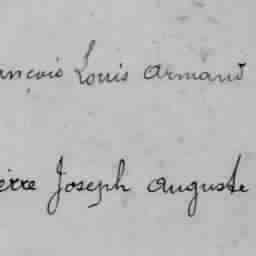 ançois Louis Armand
erre Joseph Auguste